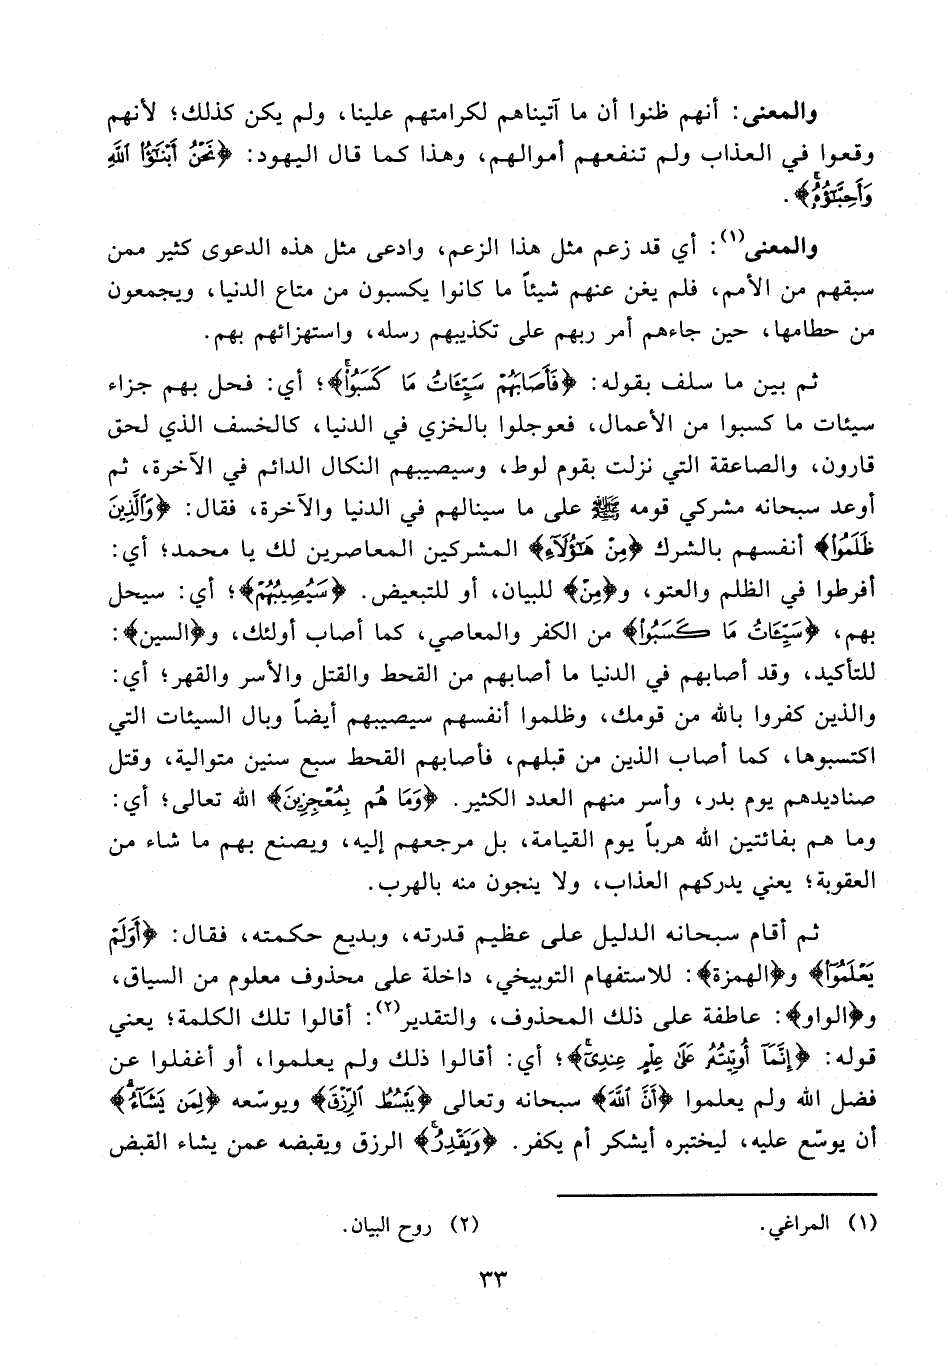 والمعنى: أنهم ظنوا أن ما آتيناهم لكرامتهم علينا، ولم يكن كذلك؛ لأنهم
وقعوا في العذاب ولم تنفعهم أموالهم، وهذا كما قال اليهود: ﴿نَحْنُ أَبْنَٰٓؤُا۟ ٱللَّهِ
وَأَحِبَّٰٓؤُهُۥۚ﴾.
والمعنى(١): أي قد زعم مثل هذا الزعم، وادعى مثل هذه الدعوى كثير ممن
سبقهم من الأمم، فلم يغن عنهم شيئاً ما كانوا يكسبون من متاع الدنيا، ويجمعون
من حطامها، حين جاءهم أمر ربهم على تكذيبهم رسله، واستهزائهم بهم.
ثم بين ما سلف بقوله: ﴿فَأَصَابَهُمْ سَيِّـَٔاتُ مَا كَسَبُوا۟ۚ﴾؛ أي: فحل بهم جزاء
سيئات ما كسبوا من الأعمال، فعوجلوا بالخزي في الدنيا، كالخسف الذي لحق
قارون، والصاعقة التي نزلت بقوم لوط، وسيصيبهم النكال الدائم في الآخرة، ثم
أوعد سبحانه مشركي قومه ﷺ على ما سينالهم في الدنيا والآخرة، فقال: ﴿وَٱلَّذِينَ
ظَلَمُوا۟﴾ أنفسهم بالشرك ﴿مِنْ هَٰٓؤُلَآءِ﴾ المشركين المعاصرين لك يا محمد؛ أي:
أفرطوا في الظلم والعتو، و﴿مِنْ﴾ للبيان، أو للتبعيض. ﴿سَيُصِيبُهُمْ﴾؛ أي: سيحل
بهم، ﴿سَيِّـَٔاتُ مَا كَسَبُوا۟﴾ من الكفر والمعاصي، كما أصاب أولئك، و﴿السين﴾:
للتأكيد، وقد أصابهم في الدنيا ما أصابهم من القحط والقتل والأسر والقهر؛ أي:
والذين كفروا بالله من قومك، وظلموا أنفسهم سيصيبهم أيضاً وبال السيئات التي
اكتسبوها، كما أصاب الذين من قبلهم، فأصابهم القحط سبع سنين متوالية، وقتل
صناديدهم يوم بدر، وأسر منهم العدد الكثير. ﴿وَمَا هُم بِمُعْجِزِينَ﴾ الله تعالى؛ أي:
وما هم بفائتين الله هرباً يوم القيامة، بل مرجعهم إليه، ويصنع بهم ما شاء من
العقوبة؛ يعني يدركهم العذاب، ولا ينجون منه بالهرب.
ثم أقام سبحانه الدليل على عظيم قدرته، وبديع حكمته، فقال: ﴿أَوَلَمْ
يَعْلَمُوٓا۟﴾ و﴿الهمزة﴾: للاستفهام التوبيخي، داخلة على محذوف معلوم من السياق،
و﴿الواو﴾: عاطفة على ذلك المحذوف، والتقدير(٢): أقالوا تلك الكلمة؛ يعني
قوله: ﴿إِنَّمَآ أُوتِيتُهُۥ عَلَىٰ عِلْمٍ عِندِىٓۚ﴾؛ أي: أقالوا ذلك ولم يعلموا، أو أغفلوا عن
فضل الله ولم يعلموا ﴿أَنَّ ٱللَّهَ﴾ سبحانه وتعالى ﴿يَبْسُطُ ٱلرِّزْقَ﴾ ويوسّعه ﴿لِمَن يَشَآءُ﴾
أن يوسّع عليه، ليختبره أيشكر أم يكفر. ﴿وَيَقْدِرُۚ﴾ الرزق ويقبضه عمن يشاء القبض
(١) المراغي. (٢) روح البيان.
٣٣